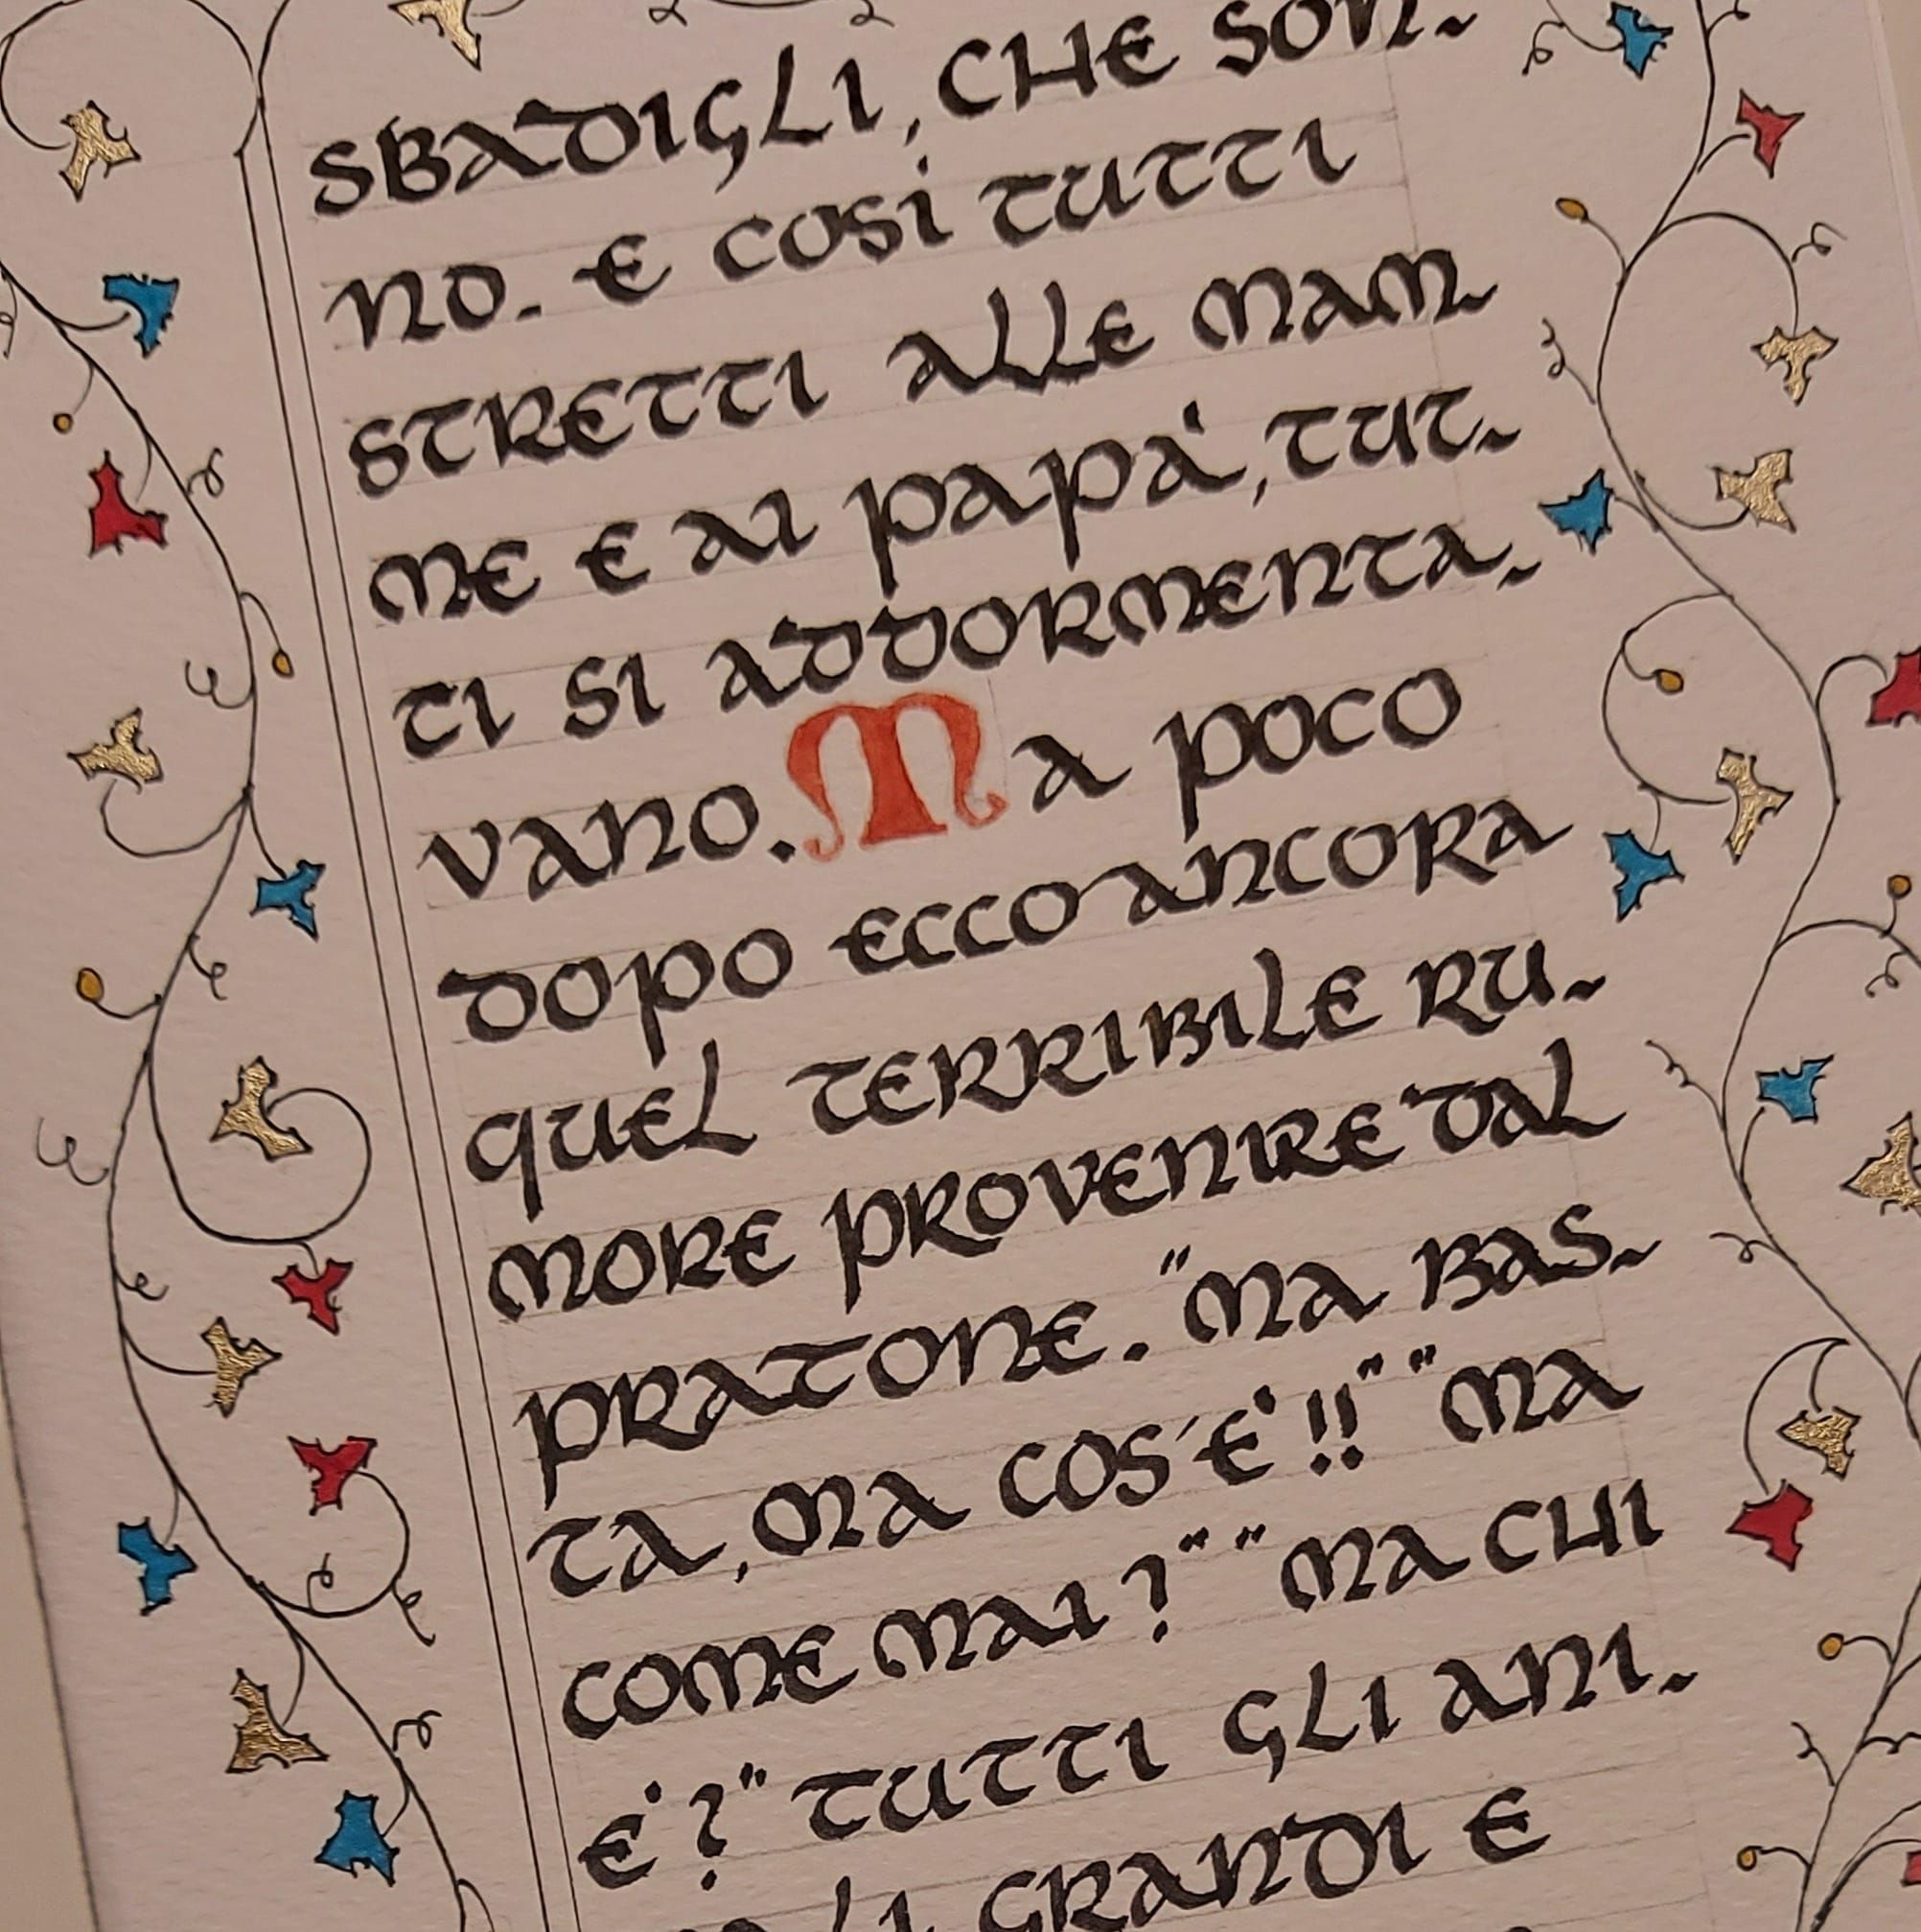 SBADIGLI, CHE SON-
NO. E COSÌ TUTTI
STRETTI ALLE MAM-
ME E AI PAPÀ, TUT-
TI SI ADDORMENTA-
VANO. MA POCO
DOPO ECCO ANCORA
QUEL TERRIBILE RU-
MORE PROVENIRE DAL
PRATONE. "MA BAS-
TA, MA COS'È!!" "MA
COME MAI?" "MA CHI
È?" TUTTI GLI ANI-
MALI GRANDI E